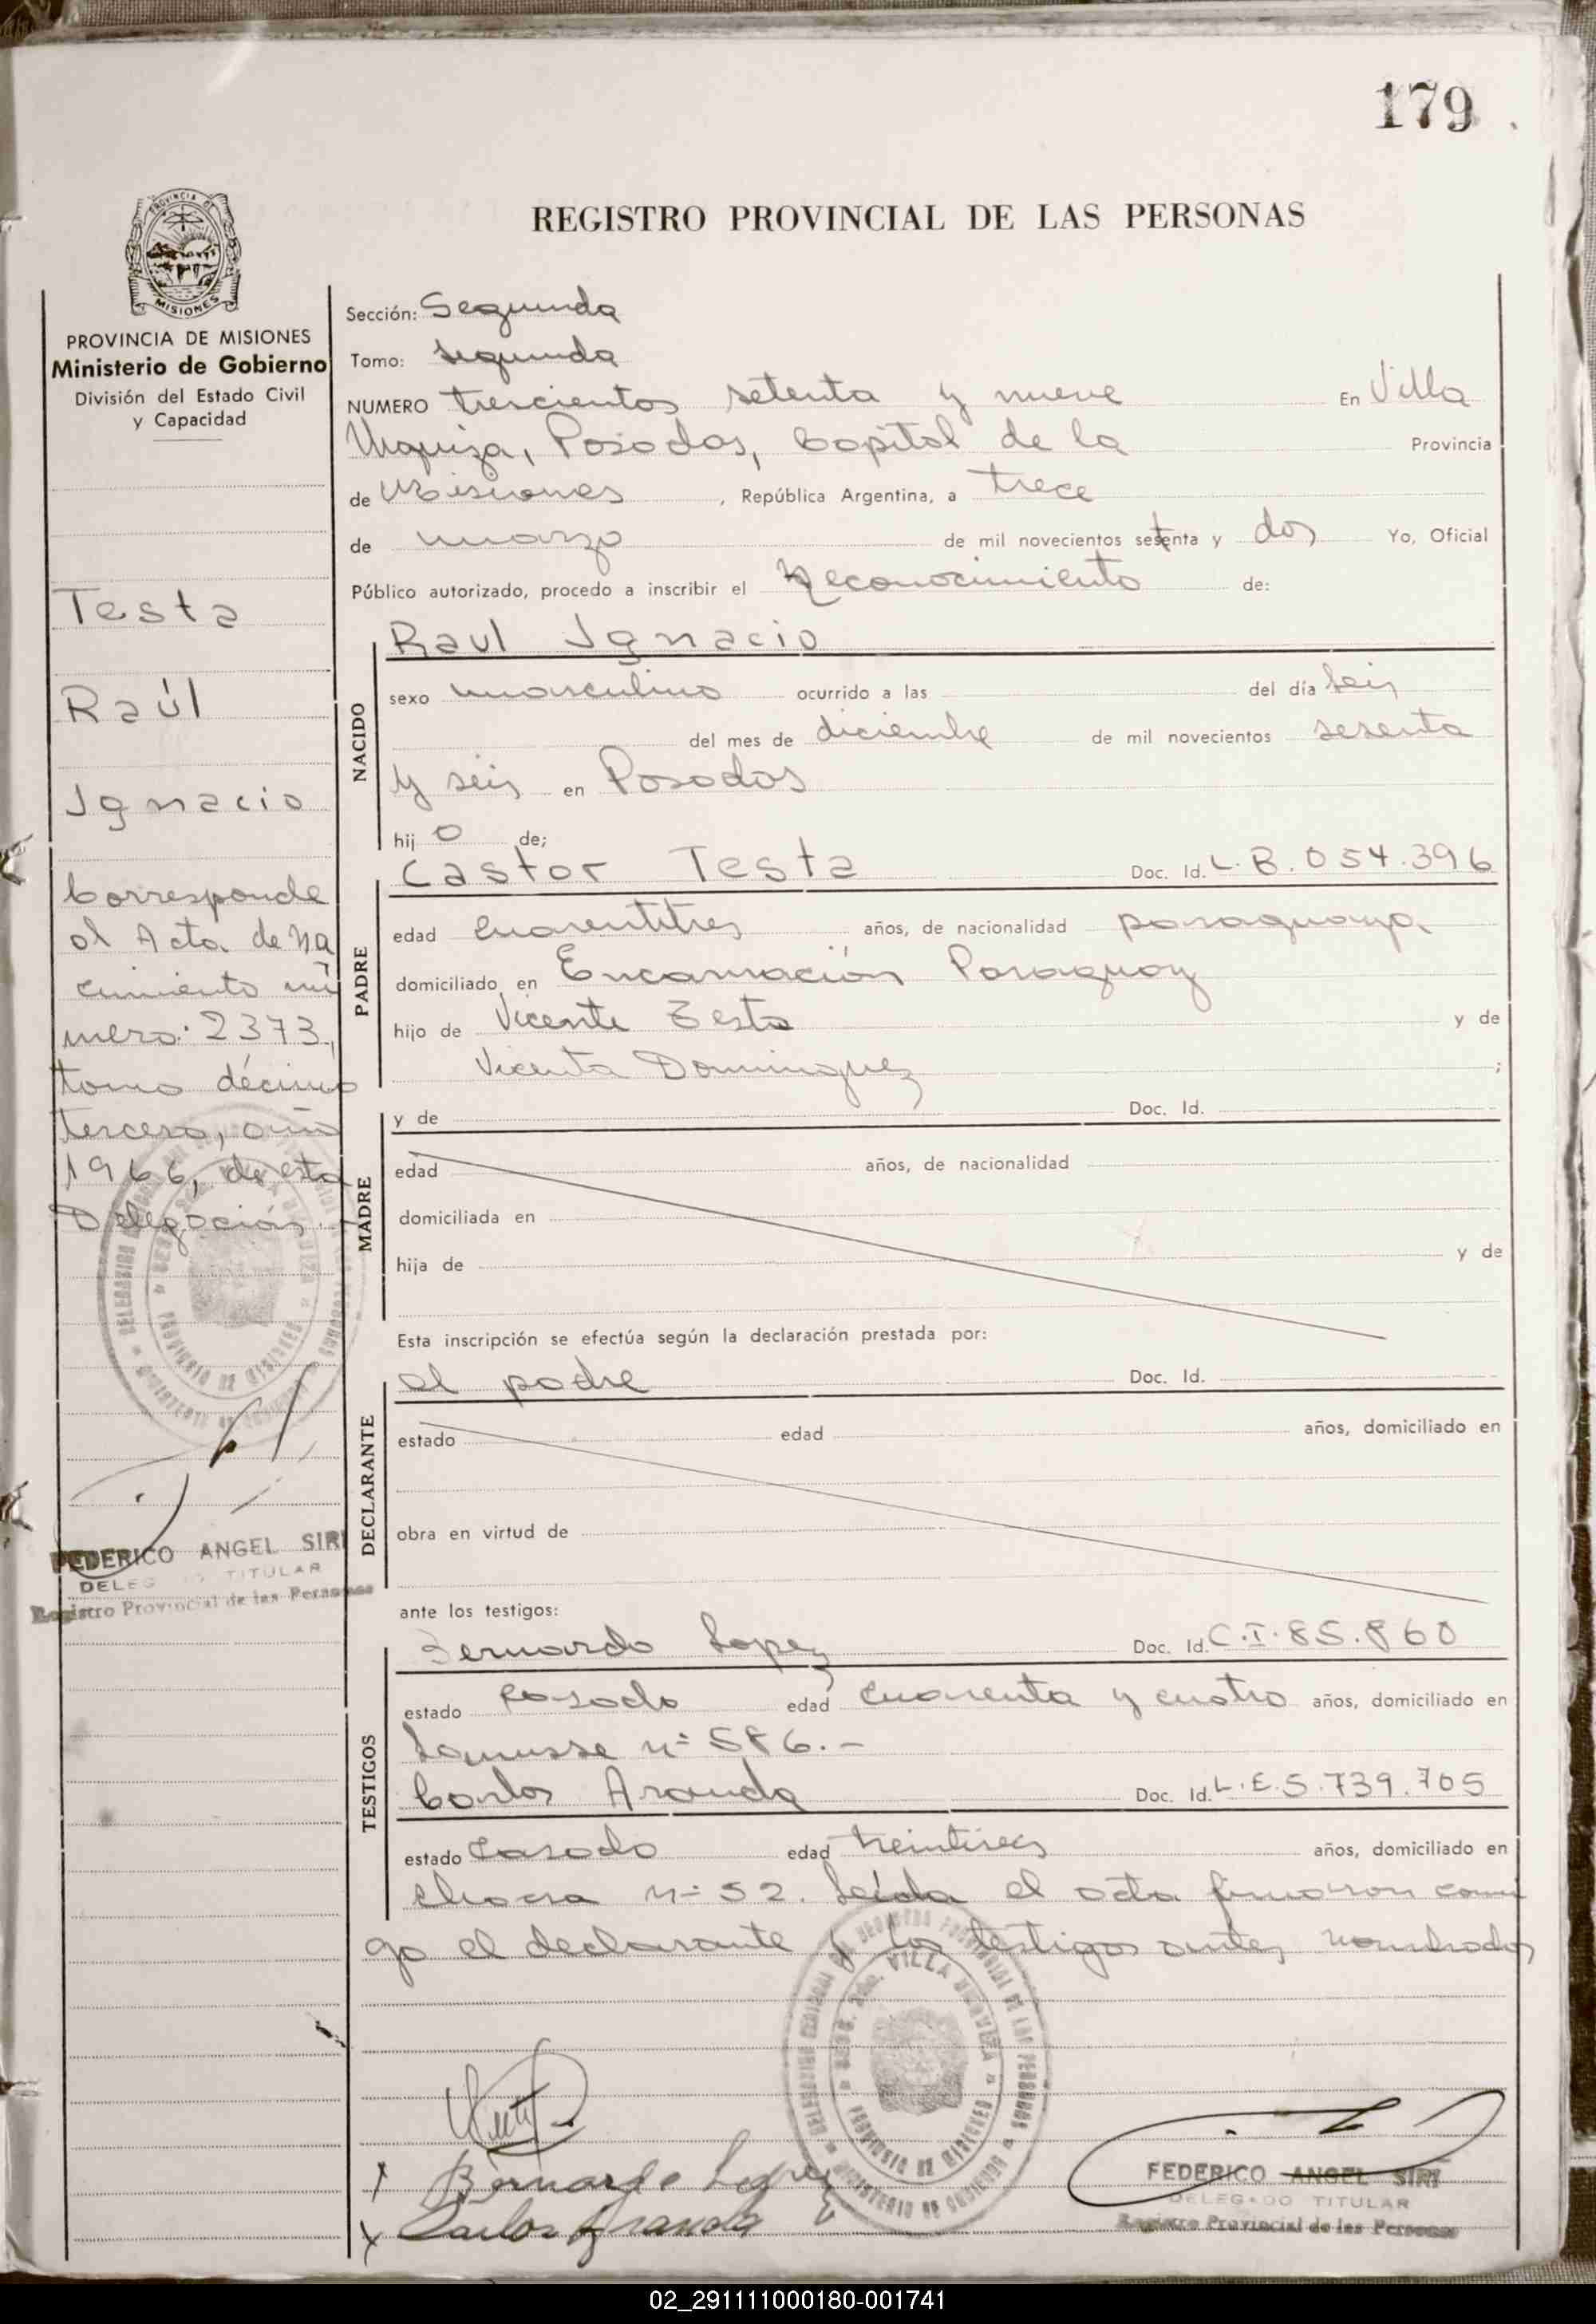 179
REGISTRO PROVINCIAL DE LAS PERSONAS
PROVINCIA DE MISIONES
Ministerio de Gobierno
División del Estado Civil
y Capacidad
Testa
Raúl
Ignacio
Corresponde
al Acta de na
cimiento nú
mero: 2373,
tomo décimo
tercero, año
1966, de esta
Delegación.
FEDERICO ANGEL SIRI
TITULAR
Registro Provincial de las Personas
Sección: Segunda
Tomo: segunda
NUMERO trescientos setenta y nueve En Villa
Urquiza, Posadas, Capital de la Provincia
de Misiones, República Argentina, a trece
de marzo de mil novecientos setenta y dos Yo, Oficial
Público autorizado, procedo a inscribir el Reconocimiento de:
NACIDO
Raul Ignacio
sexo masculino ocurrido a las del día seis
del mes de diciembre de mil novecientos sesenta
y seis en Posadas
hijo de;
PADRE
Castor Testa Doc. Id. L.B.054.396
edad cuarentitres años, de nacionalidad paraguaya
domiciliado en Encarnación Paraguay
hijo de Vicente Testa y de
Vicenta Dominguez ;
MADRE
y de Doc. Id.
edad años, de nacionalidad
domiciliada en
hija de y de
Esta inscripción se efectúa según la declaración prestada por:
DECLARANTE
el padre Doc. Id.
estado edad años, domiciliado en
obra en virtud de
ante los testigos:
TESTIGOS
Bernardo Lopez Doc. Id. C.I.85.860
estado casado edad cuarenta y cuatro años, domiciliado en
Lamusse nº 586.-
Carlos Aranda Doc. Id. L.E.5.739.705
estado casado edad treintitres años, domiciliado en
chacra nº 52. Leída el acta firmaron conmi
go el declarante y los testigos antes nombrados
VILLA URQUIZA
Bernardo Lopez
Carlos Aranda
FEDERICO ANGEL SIRI
DELEGADO TITULAR
Registro Provincial de las Personas
02_291111000180-001741